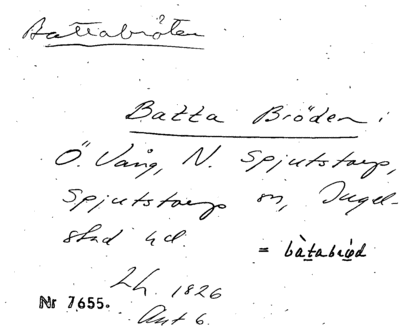 Battabröten
Batta Bröden :
Ö. Vång, N. Spjutstorp,
Spjutstorp sn, Ingel-
stad hd.
= bàtabrọd
Lh. 1826
Nr 7655.
Akt 6.